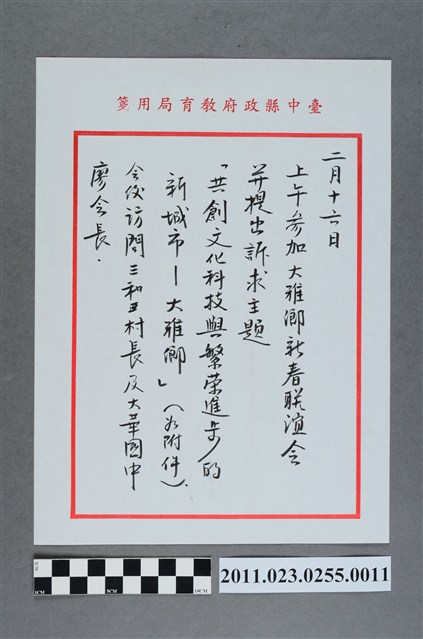 臺中縣政府教育局用箋
二月十六日
上午參加大雅鄉新春聯誼会
并提出訴求主題
「共創文化科技與繁荣進步的
新城市—大雅鄉」（如附件）.
会後訪問三和村長及大華國中
廖会長.
2011.023.0255.0011